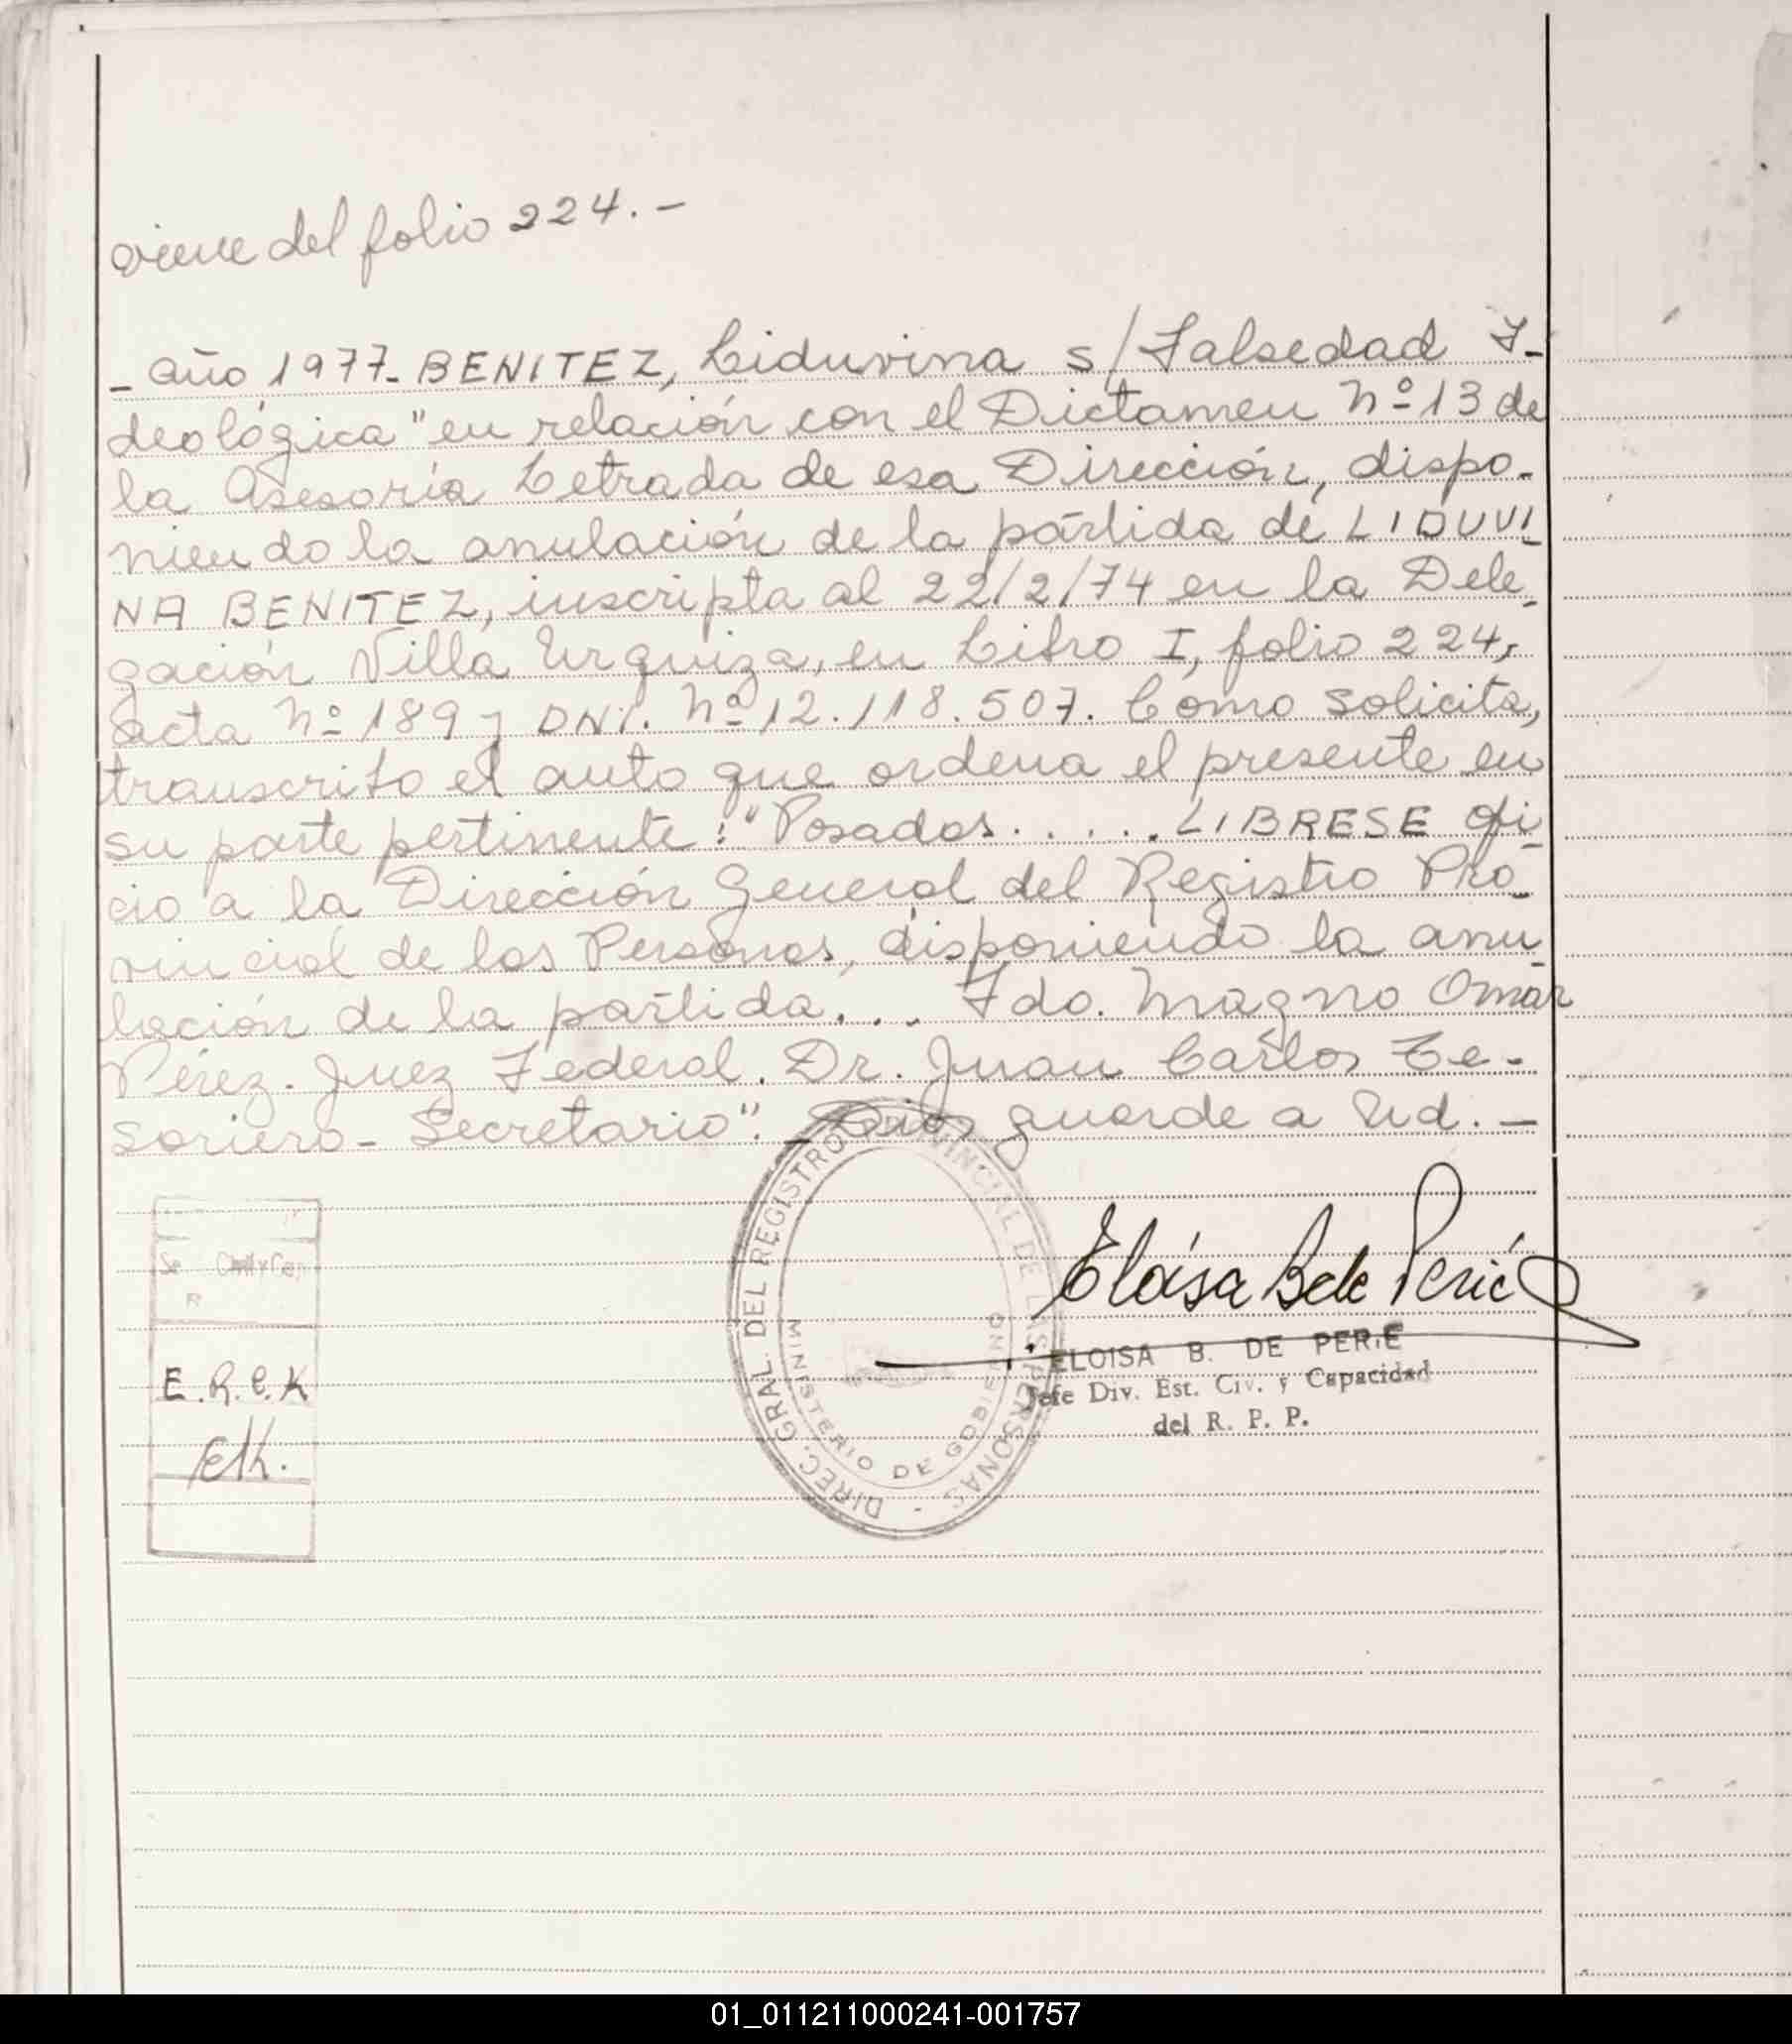 viene del folio 224.-
- Año 1977- BENITEZ, Liduvina s/Falsedad I-
deológica" en relación con el Dictamen Nº 13 de
la Asesoría Letrada de esa Dirección, dispo-
niendo la anulación de la partida de LIDUVI_
NA BENITEZ, inscripta al 22/2/74 en la Dele_
gación Villa Urquiza, en Libro I, folio 224,
acta Nº 189 y DNI. Nº 12.118.507. Como solicita,
transcrito el auto que ordena el presente en
su parte pertinente: "Posadas..... LIBRESE ofi_
cio a la Dirección General del Registro Pro_
vincial de las Personas, disponiendo la anu_
lación de la partida... Fdo. Magno Omar
Pérez. Juez Federal. Dr. Juan Carlos Te-
soriero- Secretario". _ Dios guarde a Ud. -
DIREC. GRAL. DEL REGISTRO PROVINCIAL DE LAS PERSONAS
MINISTERIO DE GOBIERNO
Eloisa B de Perié
ELOISA B. DE PERIE
Jefe Div. Est. Civ. y Capacidad
del R. P. P.
E.R.C.K
EK.
01_011211000241-001757